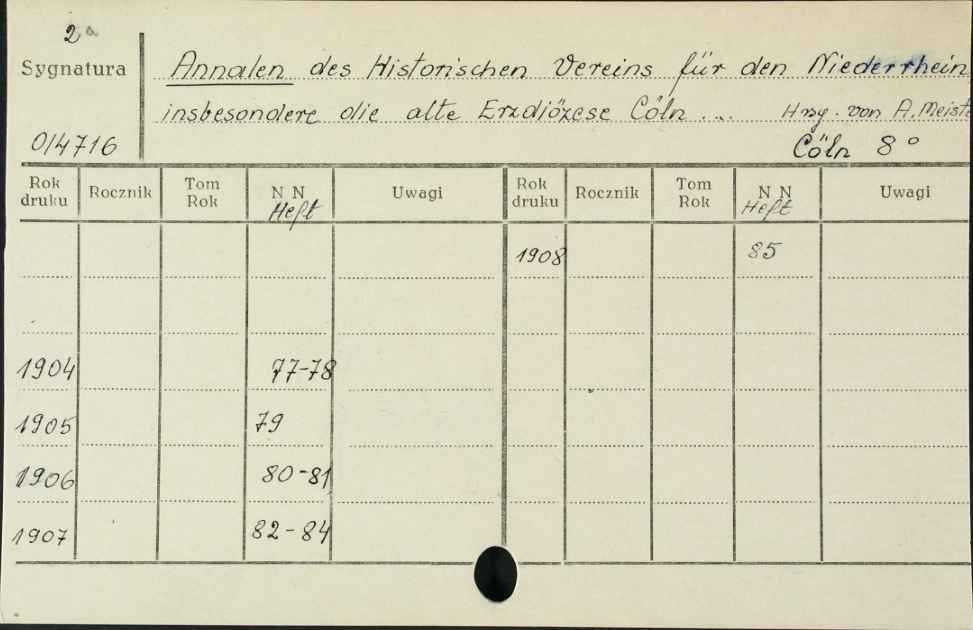 2a
Sygnatura
Annalen des Historischen Vereins für den Niederrhein
insbesondere die alte Erzdiözese Cöln ... Hrsg. von A. Meiste
0/4716
Cöln 8°
Rok druku Rocznik Tom Rok N N Heft Uwagi Rok druku Rocznik Tom Rok N N Heft Uwagi
1908 85
1904 77-78
1905 79
1906 80-81
1907 82-84